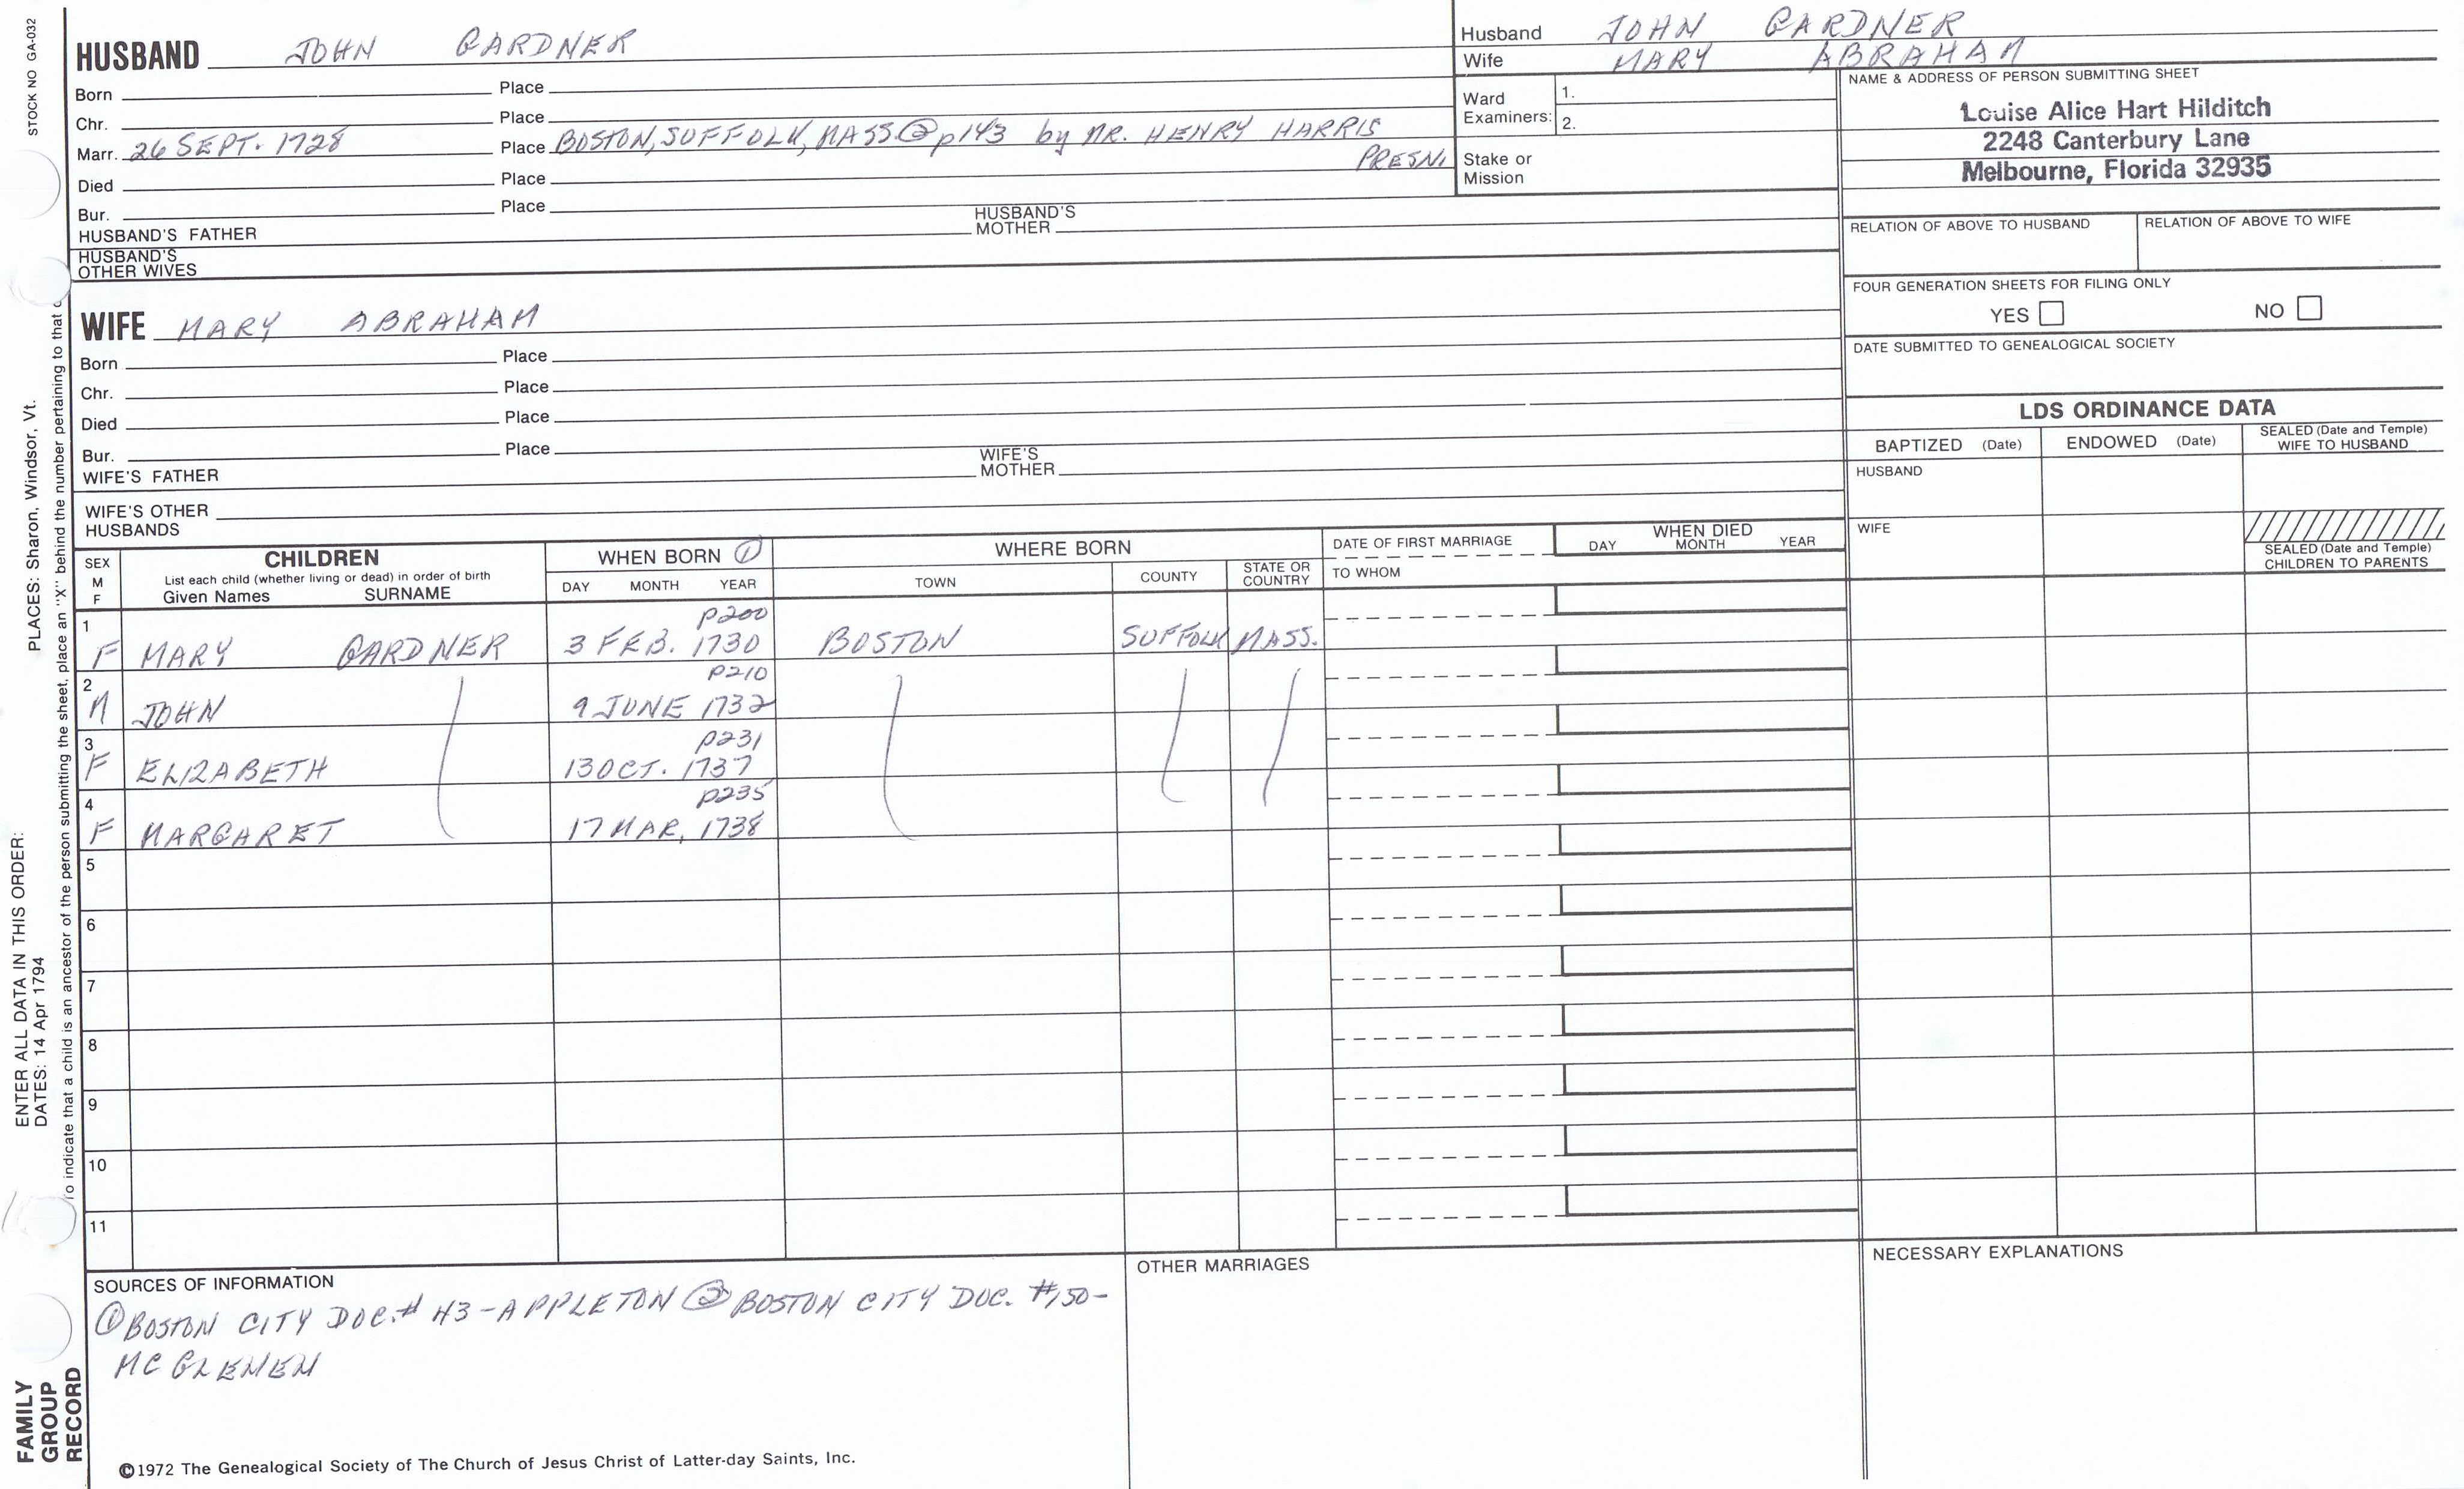 STOCK NO GA-032
HUSBAND JOHN GARDNER
Born Place
Chr. Place
Marr. 26 SEPT. 1728 Place BOSTON, SUFFOLK, MASS. ② p143 by MR. HENRY HARRIS
PRESN.
Died Place
Bur. Place
HUSBAND'S FATHER HUSBAND'S MOTHER
HUSBAND'S
OTHER WIVES
Husband JOHN GARDNER
Wife MARY ABRAHAM
Ward
Examiners: 1.
2.
Stake or
Mission
NAME & ADDRESS OF PERSON SUBMITTING SHEET
Louise Alice Hart Hilditch
2248 Canterbury Lane
Melbourne, Florida 32935
RELATION OF ABOVE TO HUSBAND RELATION OF ABOVE TO WIFE
FOUR GENERATION SHEETS FOR FILING ONLY
YES NO
DATE SUBMITTED TO GENEALOGICAL SOCIETY
WIFE MARY ABRAHAM
Born Place
Chr. Place
Died Place
Bur. Place
WIFE'S FATHER WIFE'S MOTHER
WIFE'S OTHER
HUSBANDS
LDS ORDINANCE DATA
BAPTIZED (Date) ENDOWED (Date) SEALED (Date and Temple) WIFE TO HUSBAND
HUSBAND
WIFE
SEALED (Date and Temple)
CHILDREN TO PARENTS
SEX
M
F
CHILDREN
List each child (whether living or dead) in order of birth
Given Names SURNAME
WHEN BORN ①
DAY MONTH YEAR
WHERE BORN
TOWN COUNTY STATE OR COUNTRY
DATE OF FIRST MARRIAGE
TO WHOM
WHEN DIED
DAY MONTH YEAR
1 p200
F MARY GARDNER 3 FEB. 1730 BOSTON SUFFOLK MASS.
2 p210
M JOHN 9 JUNE 1732
3 p231
F ELIZABETH 13 OCT. 1737
4 p235
F MARGARET 17 MAR. 1738
5
6
7
8
9
10
11
SOURCES OF INFORMATION
① BOSTON CITY DOC. # 43 - APPLETON ② BOSTON CITY DOC. #150 -
MC GLENEN
OTHER MARRIAGES
NECESSARY EXPLANATIONS
©1972 The Genealogical Society of The Church of Jesus Christ of Latter-day Saints, Inc.
ENTER ALL DATA IN THIS ORDER:
DATES: 14 Apr 1794
PLACES: Sharon, Windsor, Vt.
To indicate that a child is an ancestor of the person submitting the sheet, place an "X" behind the number pertaining to that
FAMILY
GROUP
RECORD